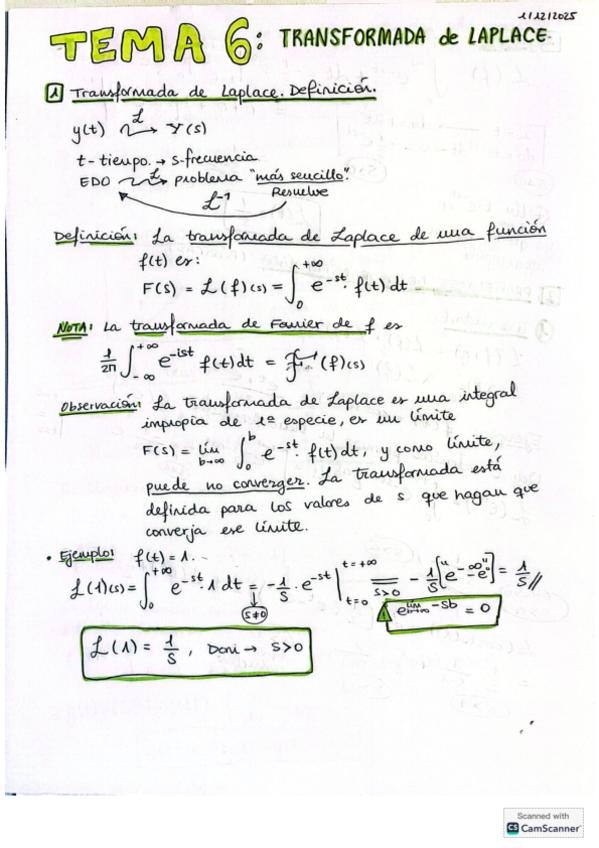 11/12/2025
TEMA 6: TRANSFORMADA de LAPLACE.
1 Transformada de Laplace. Definición.
y(t) ℒ Y(s)
t - tiempo. → s-frecuencia
EDO ℒ problema "más sencillo".
ℒ⁻¹ Resuelve
Definición: La transformada de Laplace de una función
f(t) es:
F(s) = ℒ(f)(s) = ∫₀^{+∞} e^{-st} · f(t) dt
NOTA: La transformada de Fourier de f es
1/2π ∫_{-∞}^{+∞} e^{-ist} f(t) dt = ℱ(f)(s)
Observación: La transformada de Laplace es una integral
impropia de 1ª especie, es un límite
F(s) = lím_{b→∞} ∫₀^b e^{-st} · f(t) dt, y como límite,
puede no converger. La transformada está
definida para los valores de s que hagan que
converja ese límite.
• Ejemplo: f(t) = 1.
ℒ(1)(s) = ∫₀^{+∞} e^{-st} · 1 dt = -1/s · e^{-st} |_{t=0}^{t=+∞} =_{s>0} -1/s ["e^{-∞}" - e⁰] = 1/s //
s≠0
lím e^{-sb} = 0
ℒ(1) = 1/s , Dom → s>0
Scanned with
CS CamScanner